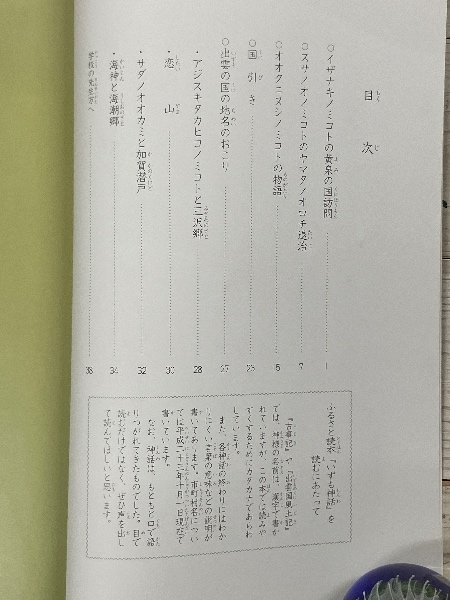 目次
○イザナキノミコトの黄泉の国訪問 1
○スサノオノミコトのヤマタノオロチ退治 7
○オオクニヌシノミコトの物語 5
○国引き 23
○出雲の国の地名のおこり 27
・アジスキタカヒコノミコトと三沢郷 28
・恋山 30
・サダノオオカミと加賀潜戸 32
・海神と海潮郷 34
学校の先生方へ 38
ふるさと読本「いずも神話」を
読むにあたって
『古事記』や『出雲国風土記』
では、神様の名前は、漢字で書か
れていますが、この本では読みや
すくするためにカタカナであらわ
しています。
また、各神話の終わりにはわか
りにくい言葉の意味などの説明が
書いてあります。市町村名につい
ては平成二十三年十月一日現在で
書いています。
なお、神話は、もともと口で語
りつがれてきたものでした。目で
読むだけではなく、ぜひ声を出し
て読んでほしいと思います。